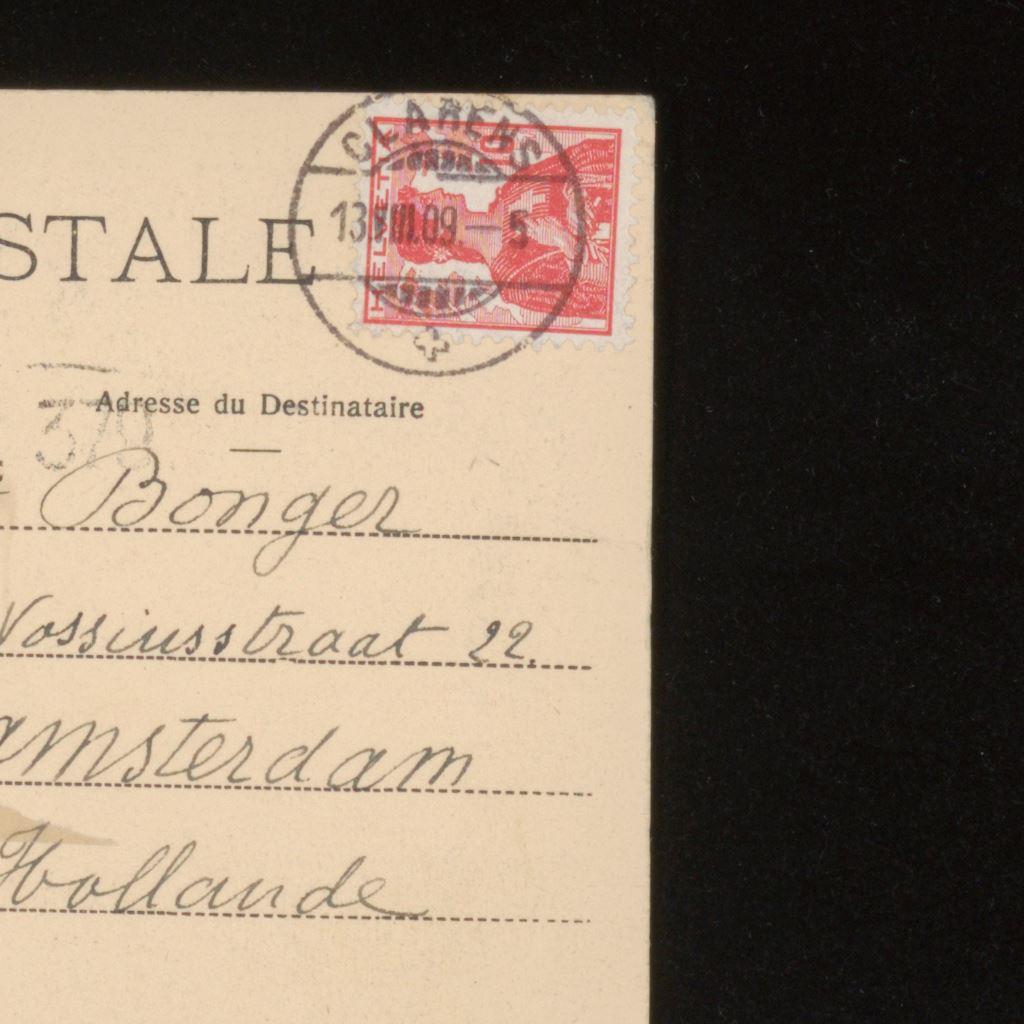 CLARENS
HELVETIA
13.VIII.09.—5
STALE
Adresse du Destinataire
370
Bonger
Vossiusstraat 22.
Amsterdam
Hollande